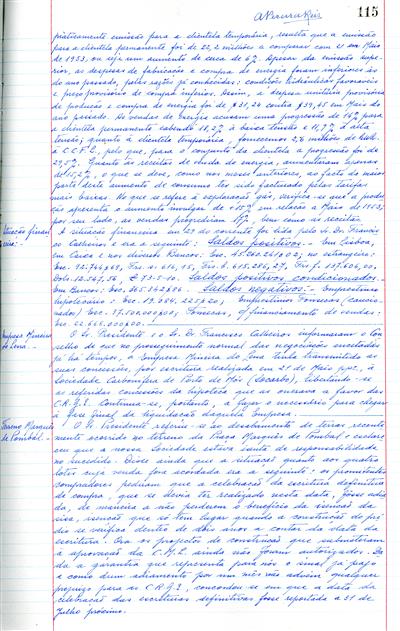 115
praticamente omissão para a clientela temporária, resulta que a emissão
para a clientela permanente foi de 22,2 milhões a comparar com 21 em Maio
de 1953, ou seja um aumento de cerca de 6%. Apesar da emissão supe-
rior, as despesas de fabricação e compra de energia foram inferiores às
do ano passado, pelas razões já conhecidas: condições hidráulicas favoráveis
e preço provisório de compra inferior. Assim, a despesa unitária provisória
de produção e compra de energia foi de $31,24 contra $39,45 em Maio do
ano passado. As vendas de energia acusam uma progressão de 14% para
a clientela permanente cabendo 18,2% à baixa tensão e 11,7% à alta
tensão; quanto à clientela temporária, fornecemos 2,6 milhões de kwh.
à C.C.F.L. pelo que, para o conjunto da clientela a progressão foi de
29,5%. Quanto às receitas de venda de energia, aumentaram apenas
de 15,2%, o que se deve, como nos meses anteriores, ao facto de maior
parte deste aumento de consumo ter sido facturado pelas tarifas
mais baixas. No que se refere à exploração gás, verifica-se que a produ-
ção apresenta o aumento mensal de +15% em relação a Maio de 1953;
por seu lado, as vendas progrediram 17%, bem como as receitas.
Situação finan-
ceira: -
A situação financeira em 29 do corrente foi lida pelo Sr. Dr. Francis-
co Calheiros e era a seguinte: Saldos positivos. - Em Lisboa,
em Caixa e nos diversos Bancos:
Saldos positivos condicionados
Em Bancos: Esc.
Saldos negativos: - Empréstimo
hipotecário: - Esc.
Empréstimos Fonsecas (caucio-
nados) Esc. 37.500.000$00; Fonsecas, c/financiamento de vendas:
Esc. 22.665.000$00. -
Empresa Mineira
do Lena. -
O Sr. Presidente e o Sr. Dr. Francisco Calheiros informaram o Con-
selho de que no prosseguimento normal das negociações encetadas
já há tempos, a Empresa Mineira do Lena tinha transmitido as
suas concessões, por escritura realizada em 21 de Maio p.p., à
Sociedade Carbonífera de Porto de Mós (Socarbo), libertando-se
as referidas concessões da hipoteca que as onerava a favor das
C.R.G.E. Continua-se, portanto, a fazer o necessário para chegar
à fase final da liquidação daquela Empresa. -
Terreno Marquês
de Pombal. -
O Sr. Presidente referiu-se ao desabamento de terras recente-
mente ocorrido no terreno da Praça Marquês de Pombal e esclare-
ceu que a nossa Sociedade estava isenta de responsabilidade
no sucedido. Disse ainda que a situação quanto aos quatro
lotes cuja venda fora acordada era a seguinte: os promitentes
compradores pediram que a celebração da escritura definitiva
de compra, que se devia ter realizado nesta data, fosse adia-
da, de maneira a não perderem o benefício da isenção da
sisa, isenção que só tem lugar quando a construção do pré-
dio se verifica dentro de dois anos a contar da data da
escritura. Ora os projectos de construção que submeteram
à aprovação da C.M.L. ainda não foram autorizados. Da-
da a garantia que representa para nós o sinal já pago
e como dum adiamento por um mês não advém qualquer
prejuízo para as C.R.G.E., concordou-se em que a data da
celebração das escrituras definitivas fosse reportada a 31 de
Julho próximo.